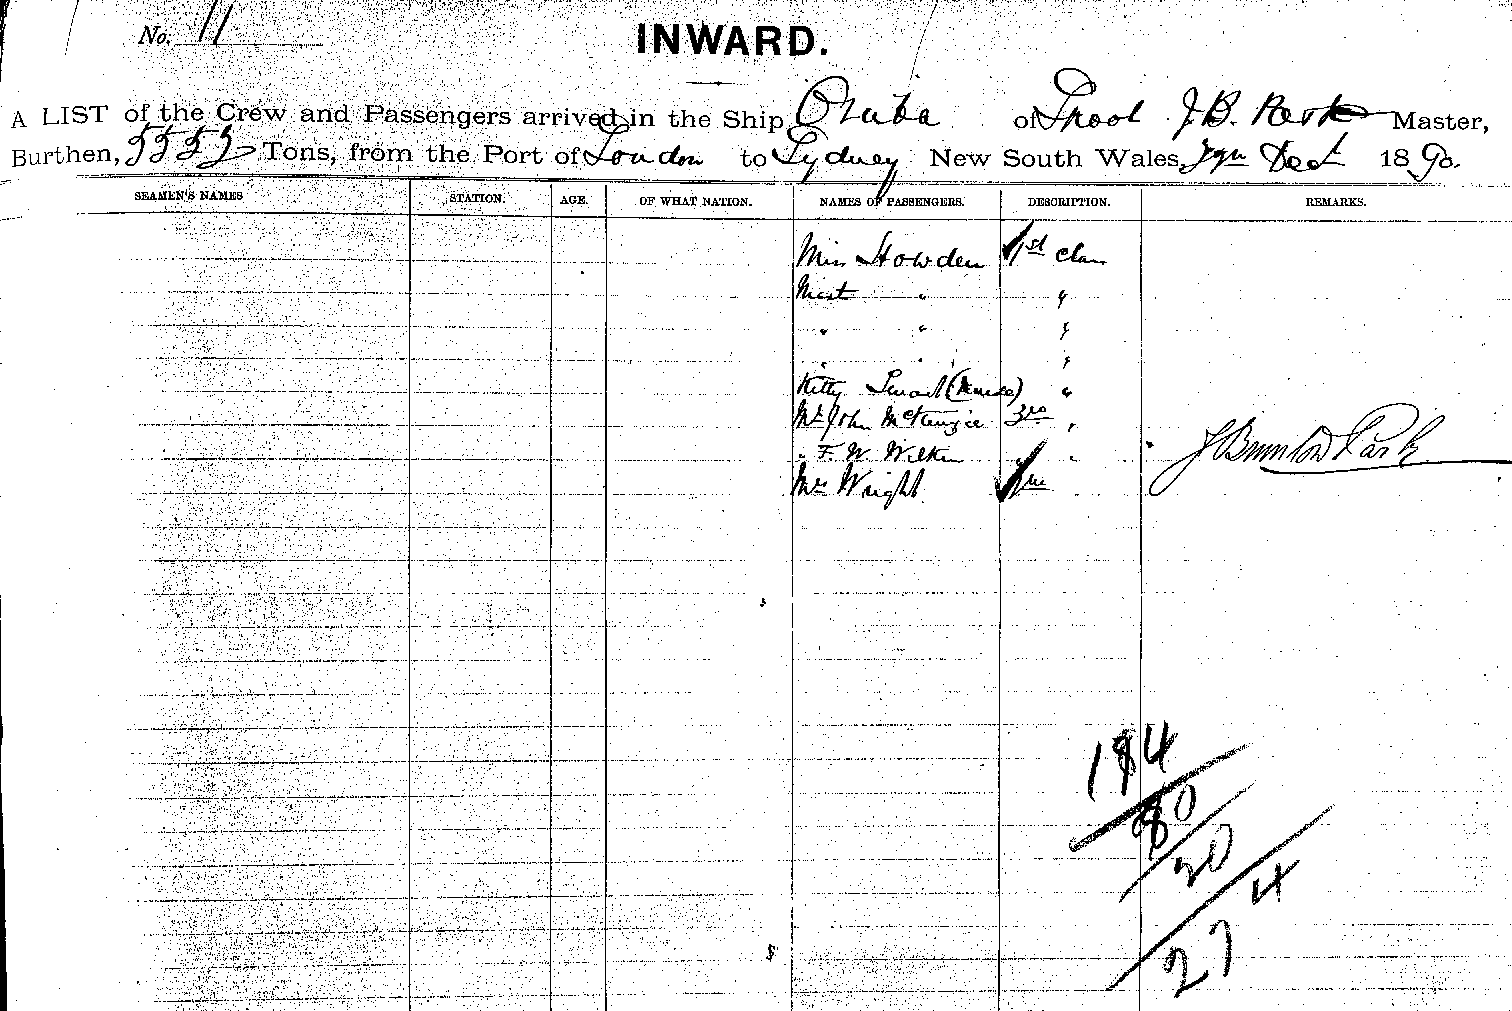 No. 11
INWARD.
A LIST of the Crew and Passengers arrived in the Ship Oruba of Lpool J.B. Park Master,
Burthen, 5552 Tons, from the Port of London to Sydney New South Wales, Dec 1890.
SEAMEN'S NAMES STATION. AGE. OF WHAT NATION. NAMES OF PASSENGERS. DESCRIPTION. REMARKS.
Miss Howden 1st Class
Mast " "
" " "
" " "
Kitty (Nurse) "
Mr John McKenzie 3rd "
" F. W. Wilkin " "
J Park
Mrs Wright
80
20
4
27